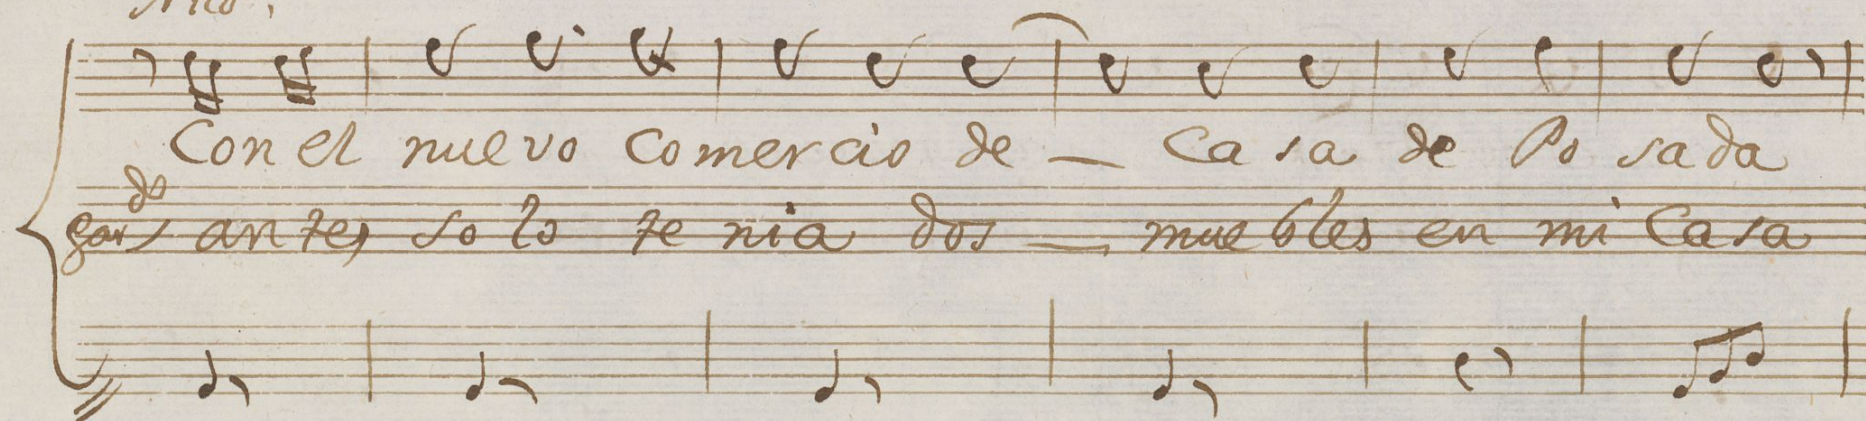 Con el nue vo Co mer cio de — Ca sa de Po sa da
antes so lo te nia dos — mue bles en mi Ca sa